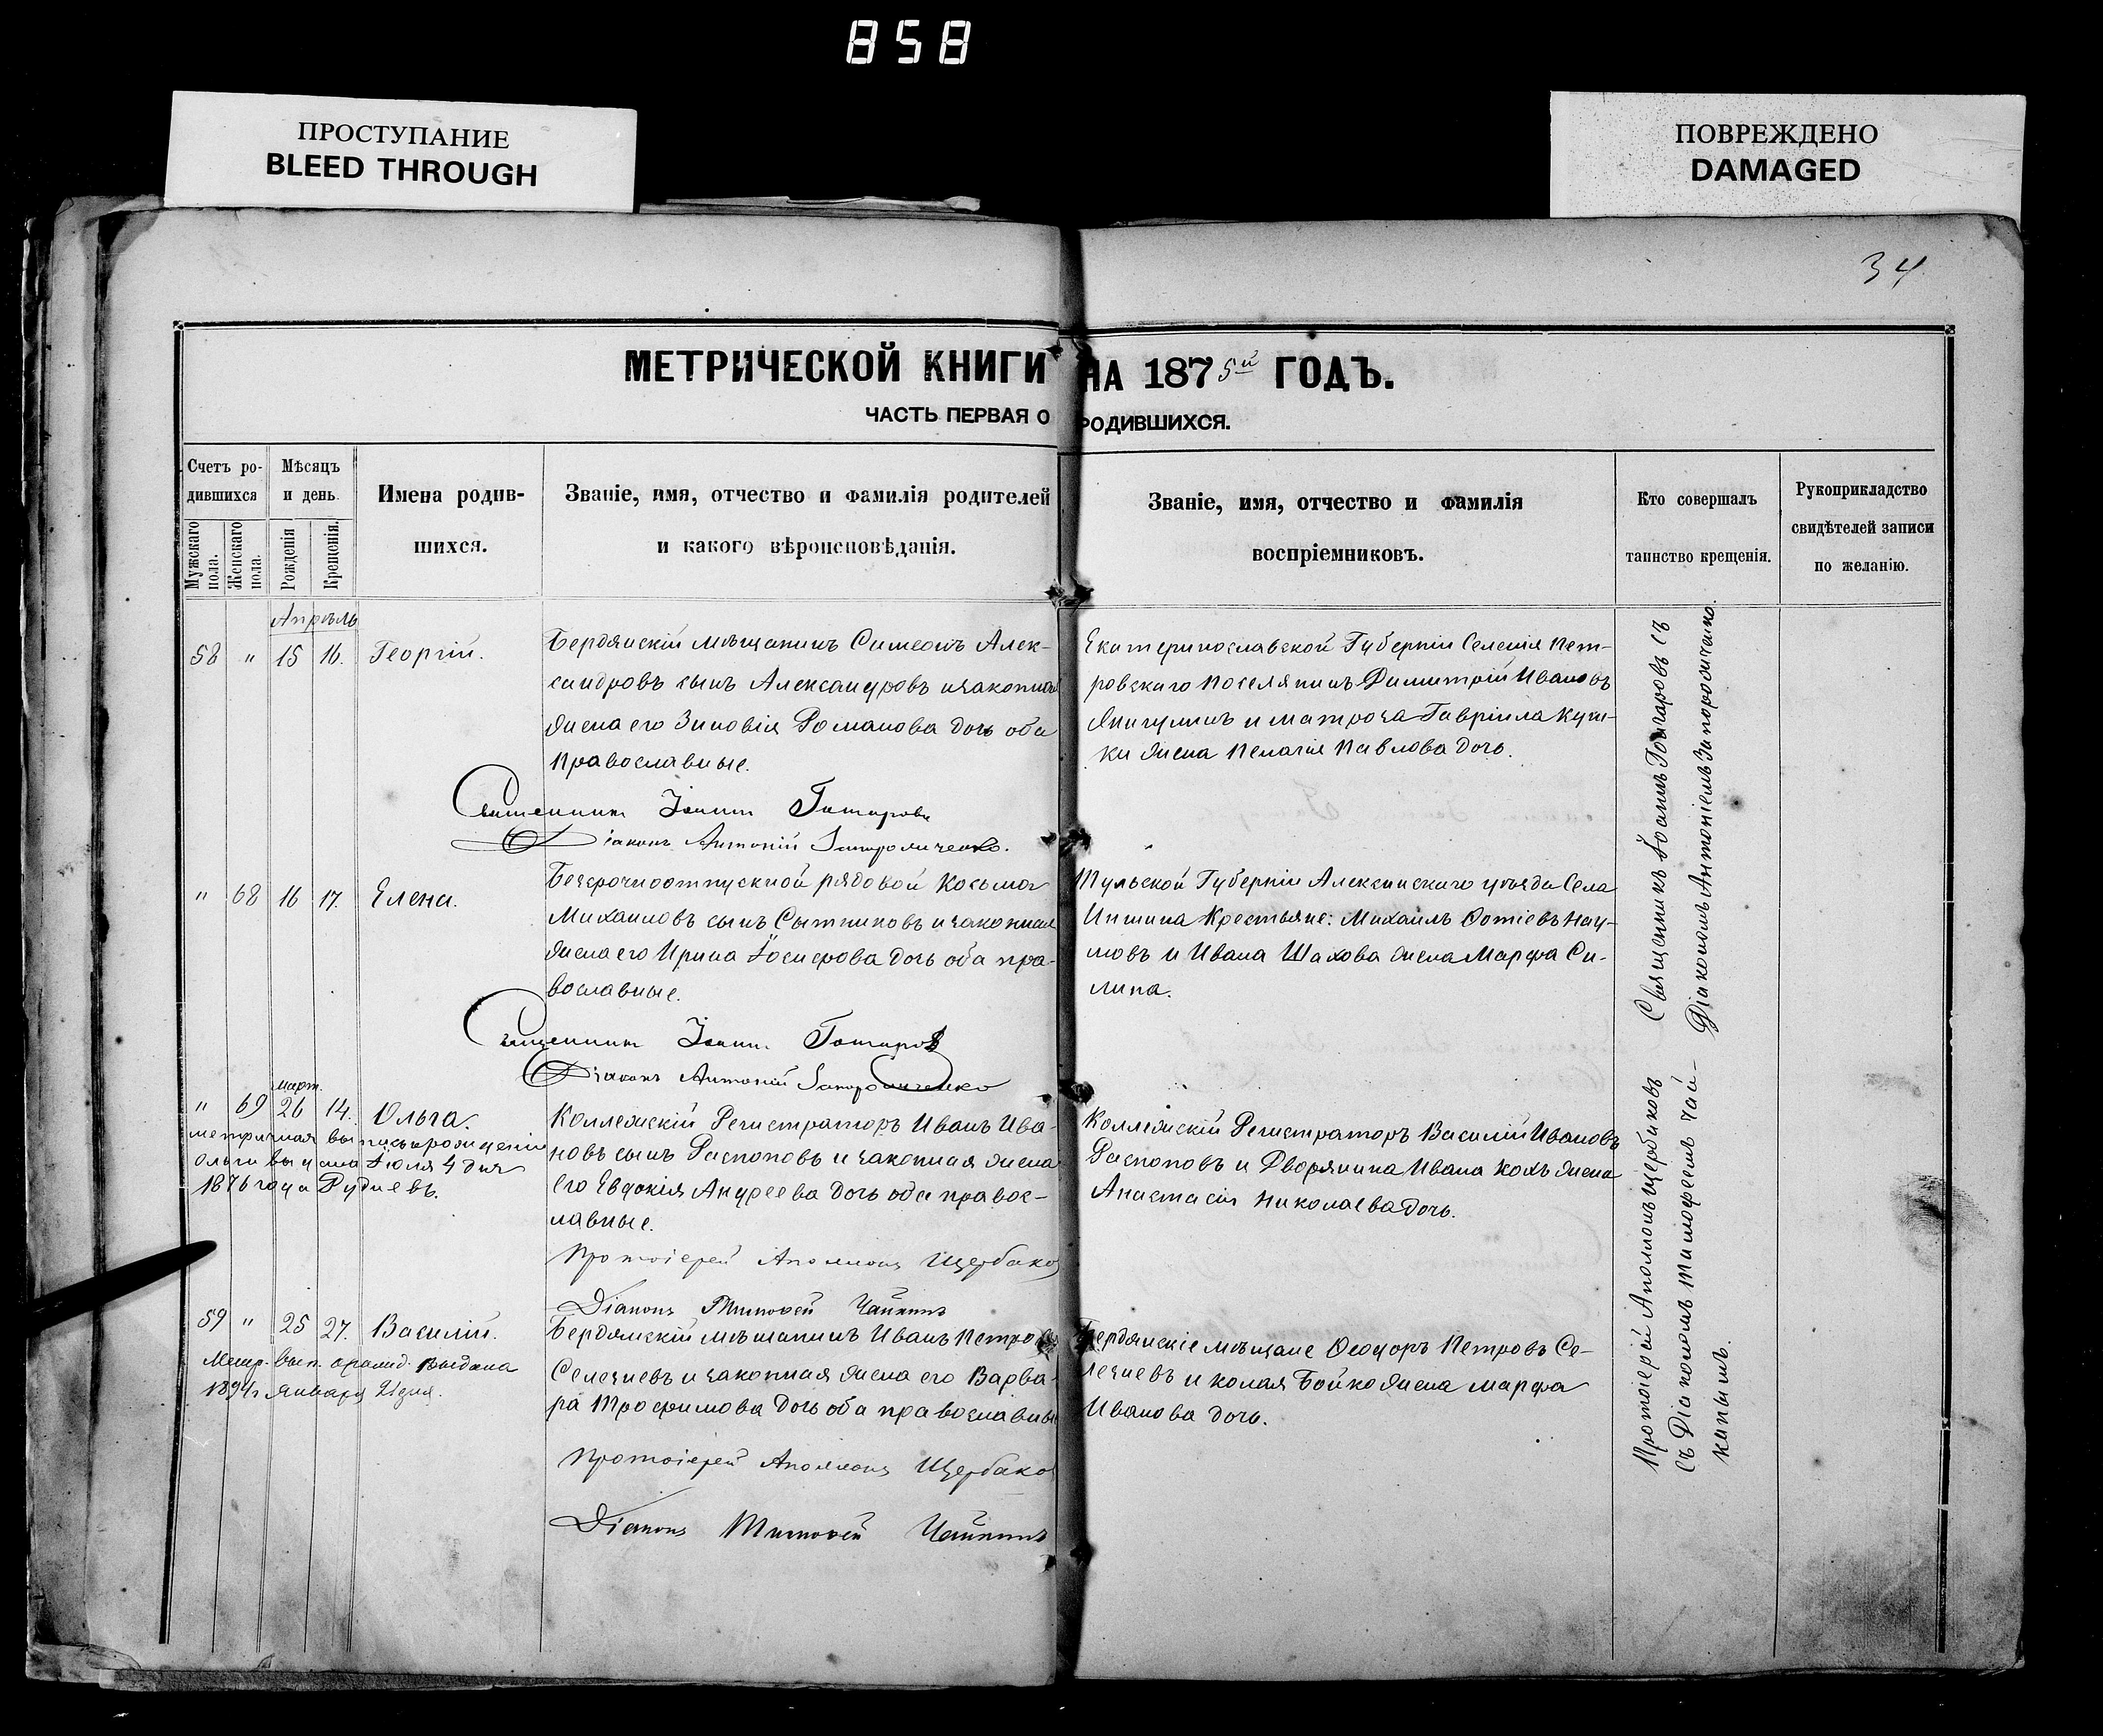 858
ПРОСТУПАНИЕ
BLEED THROUGH
ПОВРЕЖДЕНО
DAMAGED
34
МЕТРИЧЕСКОЙ КНИГИ НА 1875й ГОДЪ.
ЧАСТЬ ПЕРВАЯ О РОДИВШИХСЯ.
Счетъ ро-
дившихся
Мужскаго пола.
Женскаго пола.
Мѣсяцъ
и день.
Рожденія
Крещенія.
Имена родив-
шихся.
Званіе, имя, отчество и фамилія родителей
и какого вѣроисповѣданія.
Званіе, имя, отчество и фамилія
воспріемниковъ.
Кто совершалъ
таинство крещенія.
Рукоприкладство
свидѣтелей записи
по желанію.
Апрѣль
58 " 15 16. Георгій.
Бердянскій мѣщанинъ Симеонъ Алек-
сандровъ сынъ Александровъ и законная
жена его Зиновія Романова дочь оба
православные.
Екатеринославской Губерніи Селенія Пет-
ровскаго поселянинъ Димитрій Ивановъ
и матроса Гавріила
жена Пелагія Павлова дочь.
Священникъ Іоаннъ Гончаровъ
Діаконъ Антоній Запорожченко.
" 68 16 17. Елена.
Безсрочноотпускной рядовой Косьма
Михаиловъ сынъ Сытниковъ и законная
жена его Ирина Іосифова дочь оба пра-
вославные.
Тульской Губерніи Алексинскаго уѣзда Села
Крестьяне: Михаилъ Фотіевъ Нау-
мовъ и Ивана Шахова жена Марфа Си-
лина.
Священникъ Іоаннъ Гончаровъ
Діаконъ Антоній Запорожченко
Священникъ Іоаннъ Гончаровъ съ
Діакономъ Антоніемъ Запорожченко.
март.
" 69 26 14. Ольга.
метричная выпись о рожденіи
Ольги выдана Іюля 4 дня
1876 года Рудневъ.
Коллежскій Регистраторъ Иванъ Ива-
новъ сынъ Распоповъ и законная жена
его Евдокія Андреева дочь оба правос-
лавные.
Коллежскій Регистраторъ Василій Ивановъ
Распоповъ и Дворянина Ивана Кохъ жена
Анастасія Николаева дочь.
Протоіерей Аполлонъ Щербаковъ
Діаконъ Тимофей Чайкинъ
59 " 25 27. Василій.
Метр. вып. выдана
1894 г Января 21 дня.
Бердянскій мѣщанинъ Иванъ Петровъ
Селезневъ и законная жена его Варва-
ра Трофимова дочь оба православные
Бердянскіе мѣщане Ѳеодоръ Петровъ Се-
лезневъ и Бойко жена Марфа
Иванова дочь.
Протоіерей Аполлонъ Щербаковъ
Діаконъ Тимофей Чайкинъ
Протоіерей Аполлонъ Щербаковъ
съ Діакономъ Тимофеемъ Чай-
кинымъ.